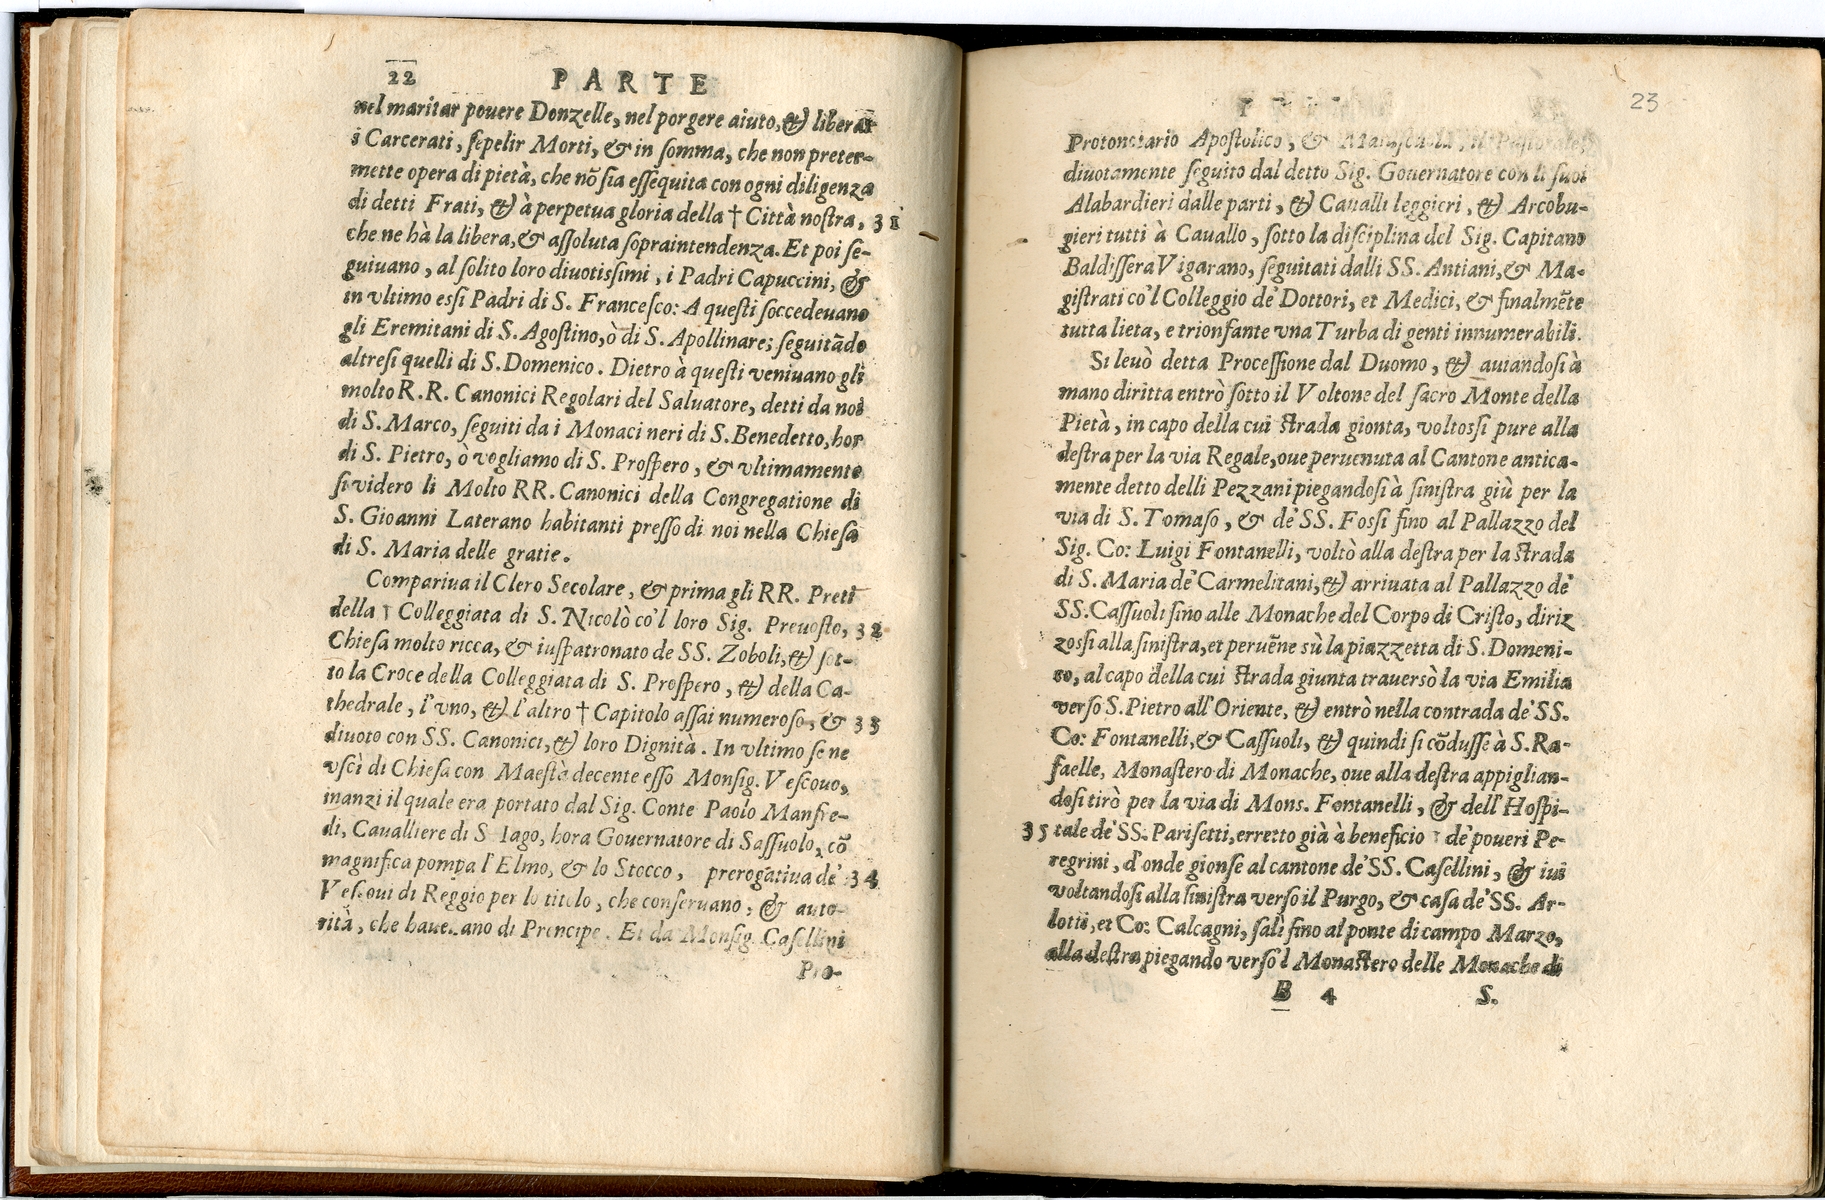 22 PARTE
nel maritar pouere Donzelle, nel porgere aiuto, & liberar
i Carcerati, ſepelir Morti, & in ſomma, che non preter-
mette opera di pietà, che nõ ſia eſſequita con ogni diligenza
di detti Frati, & à perpetua gloria della † Città noſtra, 31
che ne hà la libera, & aſſoluta ſopraintendenza. Et poi ſe-
guiuano, al ſolito loro diuotiſsimi, i Padri Capuccini, &
in vltimo eſsi Padri di S. Franceſco: A queſti ſoccedeuano
gli Eremitani di S. Agoſtino, ò di S. Apollinare; ſeguitãdo
altreſi quelli di S. Domenico. Dietro à queſti veniuano gli
molto R.R. Canonici Regolari del Saluatore, detti da noi
di S. Marco, ſeguiti da i Monaci neri di S. Benedetto, hor
di S. Pietro, ò vogliamo di S. Proſpero, & vltimamente
ſi videro li Molto RR. Canonici della Congregatione di
S. Gioanni Laterano habitanti preſſo di noi nella Chieſa
di S. Maria delle gratie.
Compariua il Clero Secolare, & prima gli RR. Preti
della † Colleggiata di S. Nicolò co'l loro Sig. Preuoſto, 32
Chieſa molto ricca, & iuſpatronato de SS. Zoboli, & ſot-
to la Croce della Colleggiata di S. Proſpero, & della Ca-
thedrale, l'vno, & l'altro † Capitolo aſſai numeroſo, & 33
diuoto con SS. Canonici, & loro Dignità. In vltimo ſe ne
vſcì di Chieſa con Maeſtà decente eſſo Monſig. Veſcouo,
inanzi il quale era portato dal Sig. Conte Paolo Manfre-
di, Caualliere di S Iago, hora Gouernatore di Saſſuolo, cõ
magnifica pompa l'Elmo, & lo Stocco, prerogatiua de' 34
Veſcoui di Reggio per lo titolo, che conſeruano, & auto-
rità, che haueuano di Prencipe. Et da Monſig. Caſellini
Pro-
23
Protonotario Apoſtolico, & il Paſtorale,
diuotamente ſeguito dal detto Sig. Gouernatore con li ſuoi
Alabardieri dalle parti, & Caualli leggieri, & Arcobu-
gieri tutti à Cauallo, ſotto la diſciplina del Sig. Capitano
Baldiſſera Vigarano, ſeguitati dalli SS. Antiani, & Ma-
giſtrati co'l Colleggio de' Dottori, et Medici, & finalmẽte
tutta lieta, e trionfante vna Turba di genti innumerabili.
Si leuò detta Proceſſione dal Duomo, & auiandoſi à
mano diritta entrò ſotto il Voltone del ſacro Monte della
Pietà, in capo della cui ſtrada gionta, voltoſsi pure alla
deſtra per la via Regale, oue peruenuta al Cantone antica-
mente detto delli Pezzani piegandoſi à ſiniſtra giù per la
via di S. Tomaſo, & de' SS. Foſsi fino al Pallazzo del
Sig. Co: Luigi Fontanelli, voltò alla deſtra per la ſtrada
di S. Maria de' Carmelitani, & arriuata al Pallazzo de'
SS. Caſſuoli ſino alle Monache del Corpo di Criſto, diriz
zoſsi alla ſiniſtra, et peruẽne sù la piazzetta di S. Domeni-
co, al capo della cui ſtrada giunta trauerſò la via Emilia
verſo S. Pietro all'Oriente, & entrò nella contrada de' SS.
Co: Fontanelli, & Caſſuoli, & quindi ſi cõduſſe à S. Ra-
faelle, Monaſtero di Monache, oue alla deſtra appiglian-
doſi tirò per la via di Mons. Fontanelli, & dell'Hoſpi-
35 tale de' SS. Pariſetti, erretto già à beneficio † de' poueri Pe-
regrini, d'onde gionſe al cantone de' SS. Caſellini, & iui
voltandoſi alla ſiniſtra verſo il Purgo, & caſa de' SS. Ar-
lotti, et Co: Calcagni, ſalì fino al ponte di campo Marzo,
alla deſtra piegando verſo'l Monaſtero delle Monache di
B 4 S.